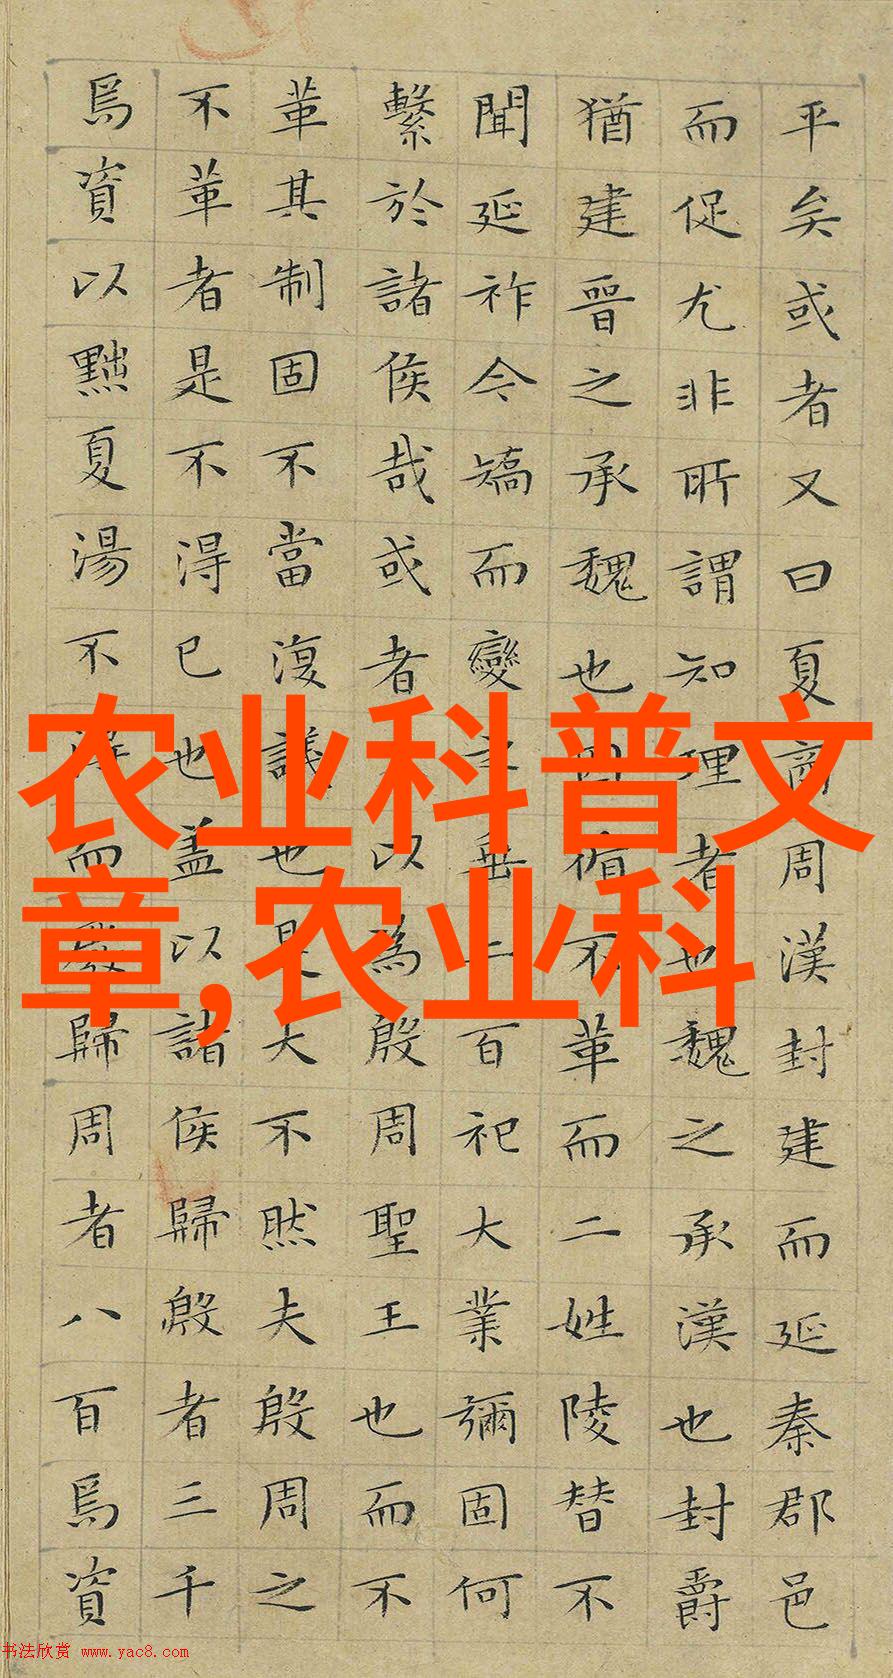 农业科普文
章,农业科
平矣或者又曰夏商周漢封建而延秦郡邑
而促尤非所謂知理者也魏之承漢也封爵
猶建晉之承魏也因循不革而二姓陵替不
聞延祚今矯而變之垂二百祀大業彌固何
繫於諸侯哉或者以為殷周聖王也而不
革其制固不當復議也是大不然夫殷周之
不革者是不得已也蓋以諸侯歸殷者三千
焉資以黜夏湯不得而廢歸周者八百焉資
书法欣赏 www.yac8.com